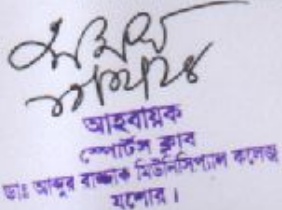 আহবায়ক
স্পোর্টস ক্লাব
ডাঃ আব্দুর রাজ্জাক মিউনিসিপ্যাল কলেজ
যশোর।